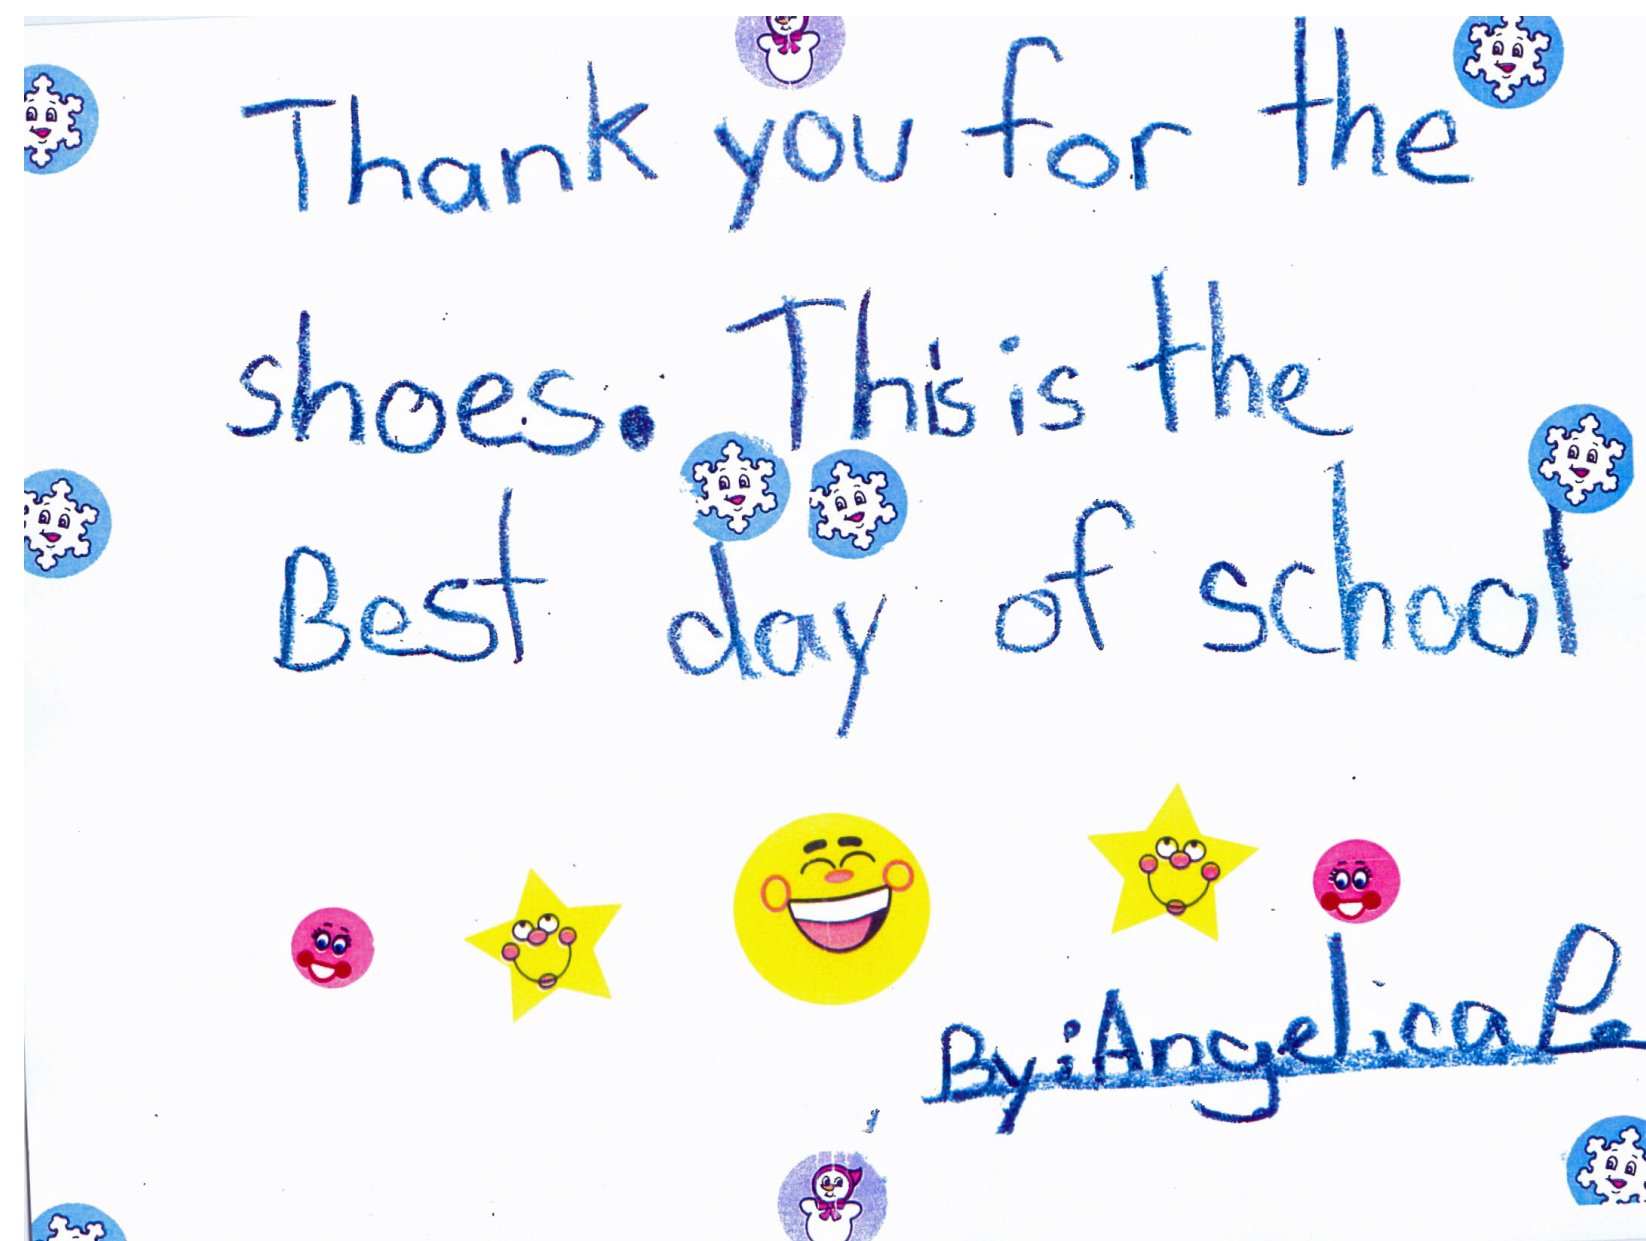 Thank you for the
shoes. This is the
Best day of school
By: Angelica P.